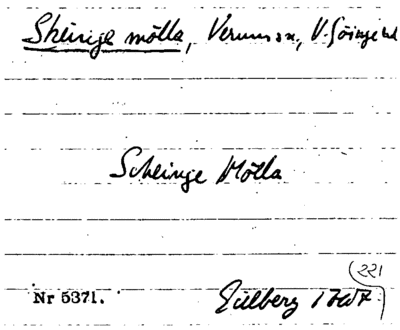 Skeinge mölla, Verums sn, V. Göinge hd
Scheinge Mölla
(221
Nr 5371. Gillberg 1767